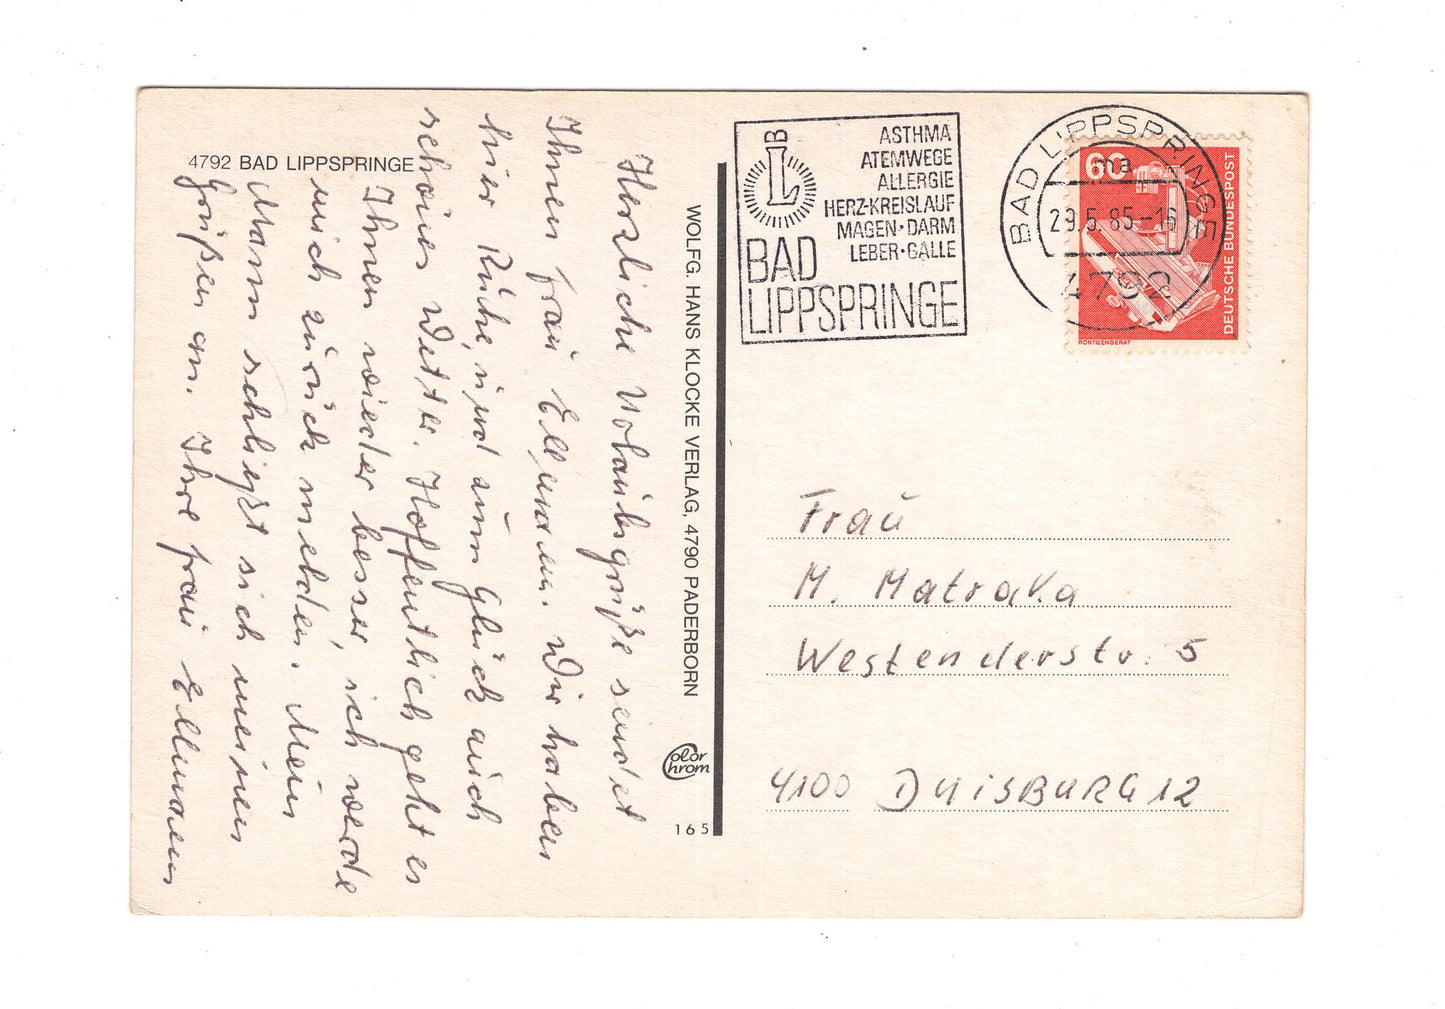 4792 BAD LIPPSPRINGE
Herzliche Urlaubsgrüße sendet
Ihnen Frau Ellmann. Wir haben
hier Ruhe, und zum Glück auch
schönes Wetter. Hoffentlich geht es
Ihnen wieder besser, ich werde
mich zurück melden. Mein
Mann schließt sich meinen
Grüßen an. Ihre Frau Ellmann
WOLFG. HANS KLOCKE VERLAG, 4790 PADERBORN
Color
Chrom
165
B
L
ASTHMA
ATEMWEGE
ALLERGIE
HERZ-KREISLAUF
MAGEN·DARM
LEBER·GALLE
BAD
LIPPSPRINGE
BAD LIPPSPRINGE
ma
29.5.85-16
4792
60
DEUTSCHE BUNDESPOST
RÖNTGENGERÄT
Frau
M. Matraka
Westenderstr. 5
4100 DUISBURG 12